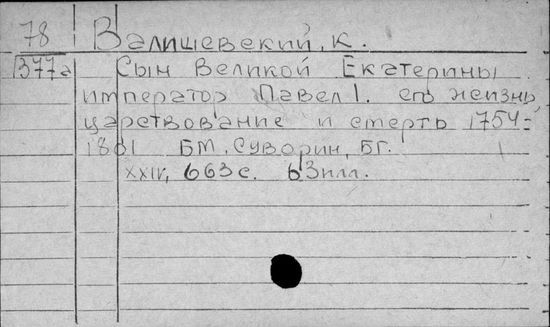 78 Валишевский, К.
1377а Сын Великой Екатерины
император Павел I. его жизнь,
царствование и смерть 1754-
1801 БМ, Суворин, БГ.
XXIV, 663 с. 63 илл.